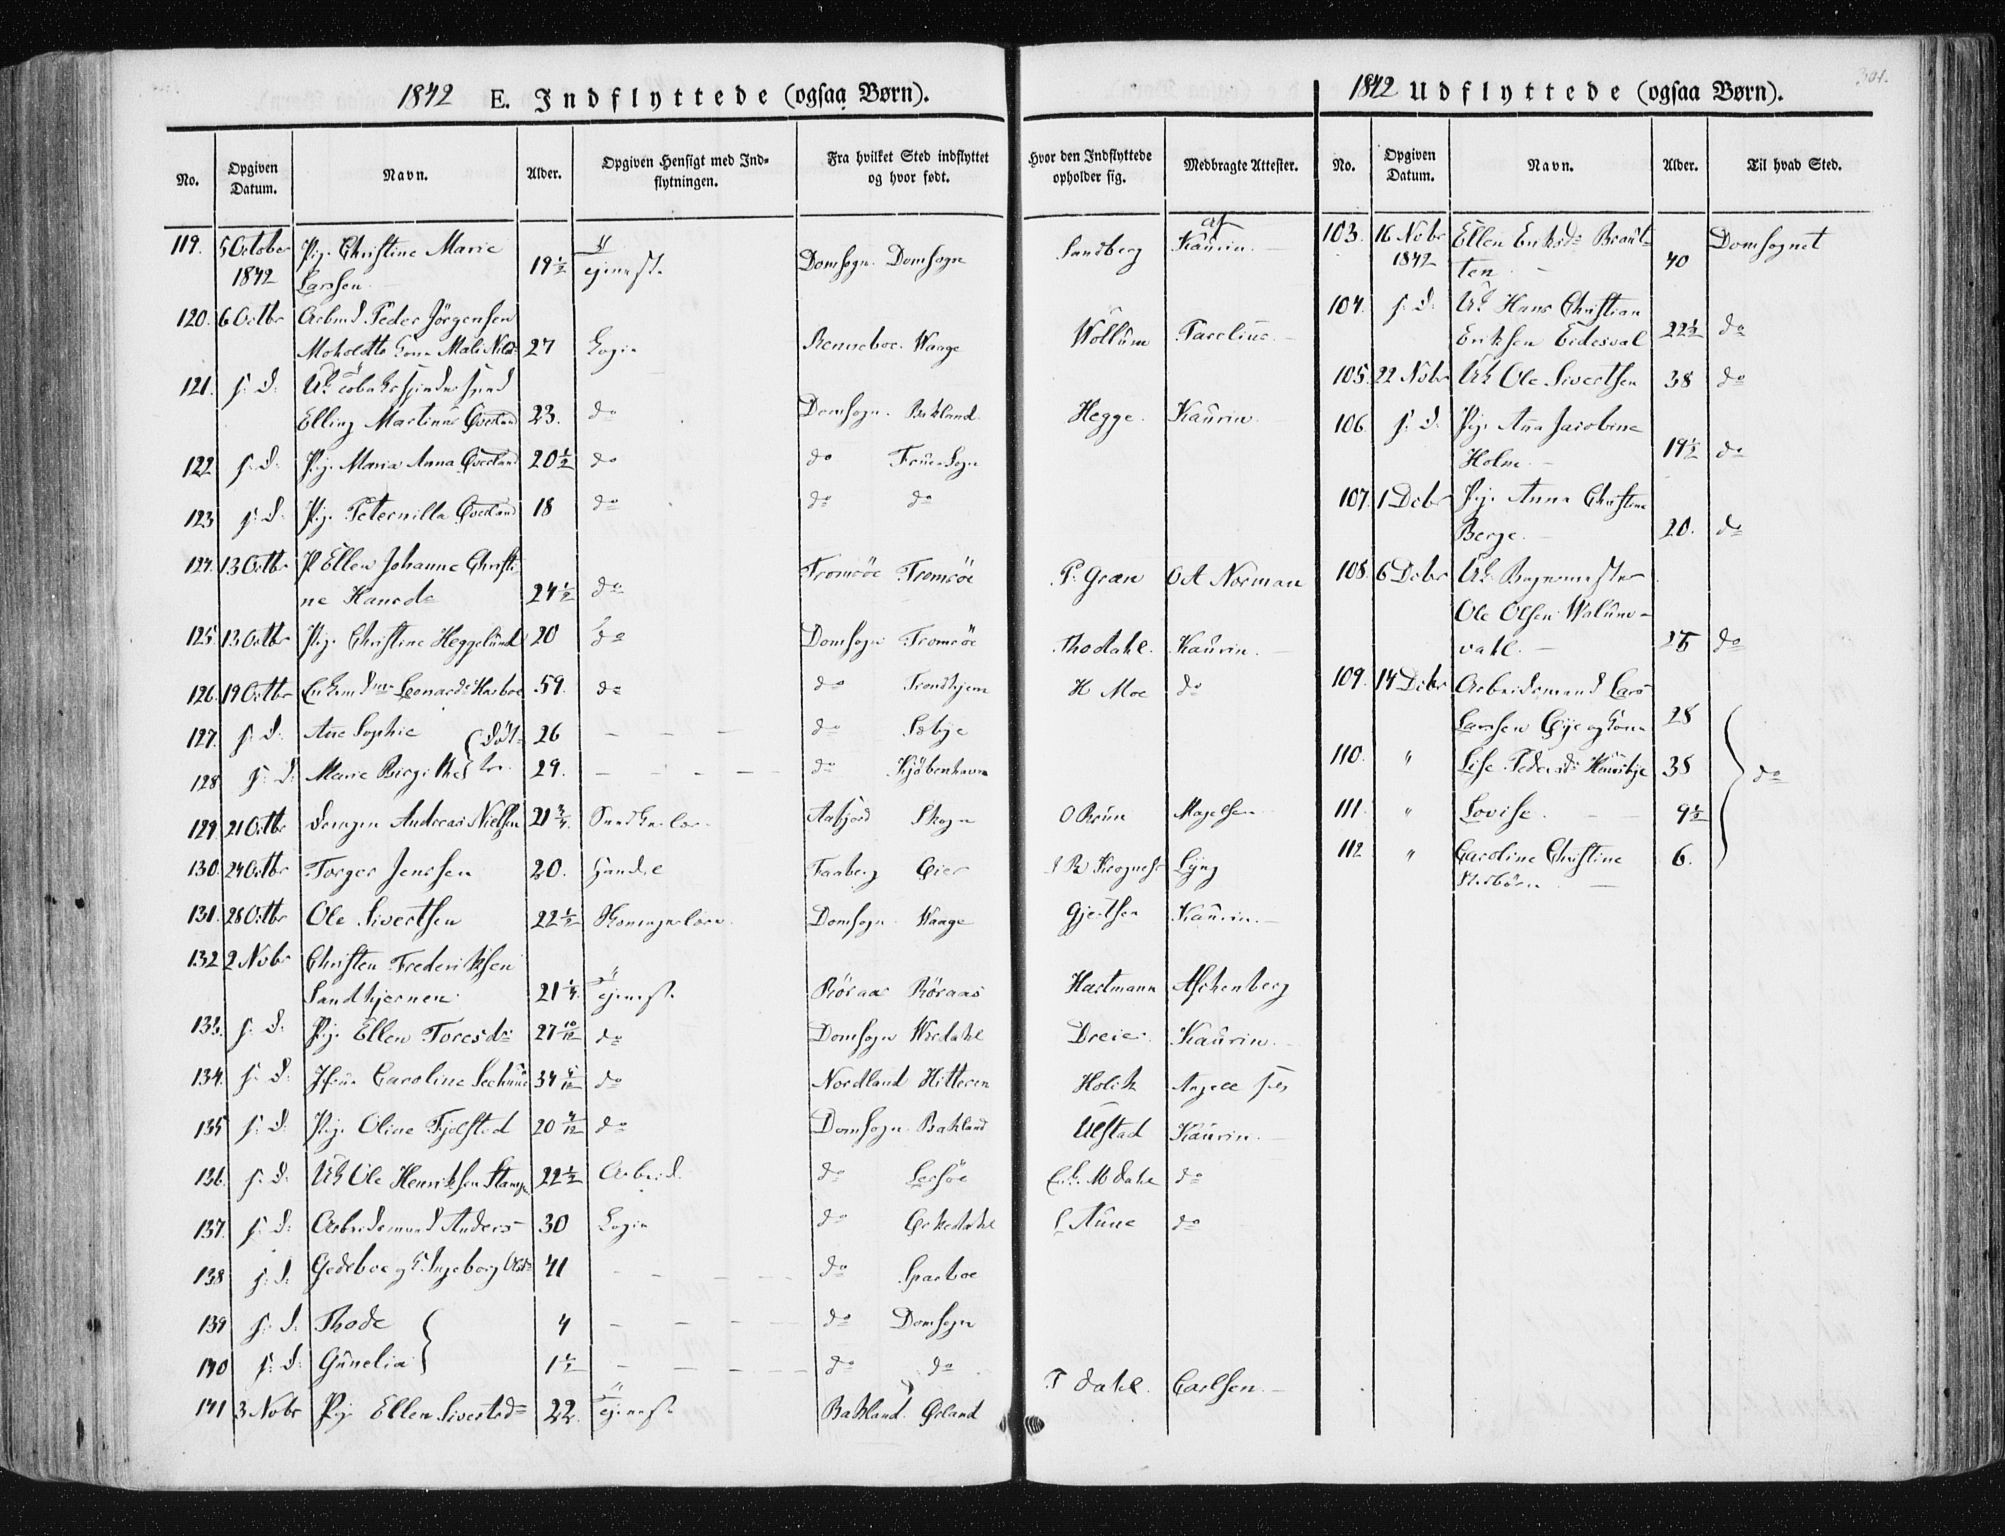 1842 E. Indflyttede (ogsaa Børn).
No. Opgiven Datum. Navn. Alder. Opgiven Hensigt med Indflytningen. Fra hvilket Sted indflyttet og hvor født. Hvor den Indflyttede opholder sig. Medbragte Attester.
119. 5 October Pig. Christine Marie
1842 Larssen 19 1/2 Tjeneste Domsogn. Domsogn Sandberg af Kaurin.
120. 6 Octbr Arbmd Peder Jörgensen
Moholdt Kona Mali Nilsd 27 Logie Renneboe. Waage Wollum
121. s. d. Uk
Elling Martinus Överland 23. do Domsogn. Bakland Hegge. Kaurin.
122 s. d. Pig. Maria Anna Överland 20 1/2 do do Frue Sogn
123 s. d. Pig. Peternilla Överland 18 do do do
124. 13 Octbr P Ellen Johanne Christi-
ne 24 1/2 do Tromsöe Tromsöe P. Græn Norman
125 13 Octbr Pig. Christine Heggelund 20 do Domsogn Tromsöe Thodahl. Kaurin.
126. 19 Octbr Leonard 59. do do Trondhjem H Moe do
127. s. d. Ane Sophie Döt- 26 do Sæbye
128 s. d. Marie Birgithe tre. 29. do Kjöbenhavn
129 21 Octbr Drengen Andreas Nielsen 21 3/4. Aafjord Skogn O Bruun
130. 24 Octbr Torger Jenssen 20. Handle Faaberg Öier Lÿng
131. 28 Octbr Ole Sivertsen 22 1/2 Domsogn. Waage Gjertsen Kaurin.
132 2 Nobr Christen Frederiksen
Sandkjernen 21 1/4. Tjeneste Röraas Röraas Hartmann Aschenberg
133. s. d. Pig. Ellen Toresdr 27 10/12 do Domsogn Værdahl Dreier Kaurin.
134. s. d. Jfru Caroline 34 4/12 do Nordland Hitteren Angell
135 s. d. Pig. Oline Fjelstad 20 4/12 do Domsogn. Bakland Ulstad Kaurin.
136. s. d. Uk Ole Henriksen 22 1/2 Arbeid do Lexöe Enk. M dahl do
137. s. d. Arbeidsmand Anders 30 Logie do Orkedahl L Aune do
138 s. d. Gedeboe og K. Ingeborg 41 do Sparboe
139 s. d. Thode 4 do Domsogn
140 s. d. Gunelia 1 1/2 do do
141 3 Nobr Pige Ellen Sivertsdr 22 Tjeneste Bakland. Ørland P dahl. Carlsen.
1842 Udflyttede (ogsaa Børn). 301.
No. Opgiven Datum. Navn. Alder. Til hvad Sted.
103. 16 Nobr Ellen Eriksdr Braut-
1842 ten. 40 Domsognet
104. s. d. Uk Hans Christian
Eriksen Eidsval 22 1/2 do
105. 22 Nobr Uk Ole Sivertsen 38 do
106. s. d. Pig. Ana Jacobine
Holm. 19 1/2 do
107. 1 Debr Pig. Anna Christine
Berge. 20. do
108. 6 Debr Uk. Bagermester
Ole Olsen Walum-
vahl. 28 do
109. 14 Debr Arbeidsmand Lars
Larssen Öye og Kone 28
110. " Lise Pedersdr 38 do
111. " Lovise. 9 1/2
112 " Caroline Christine 6.
Stedbörn